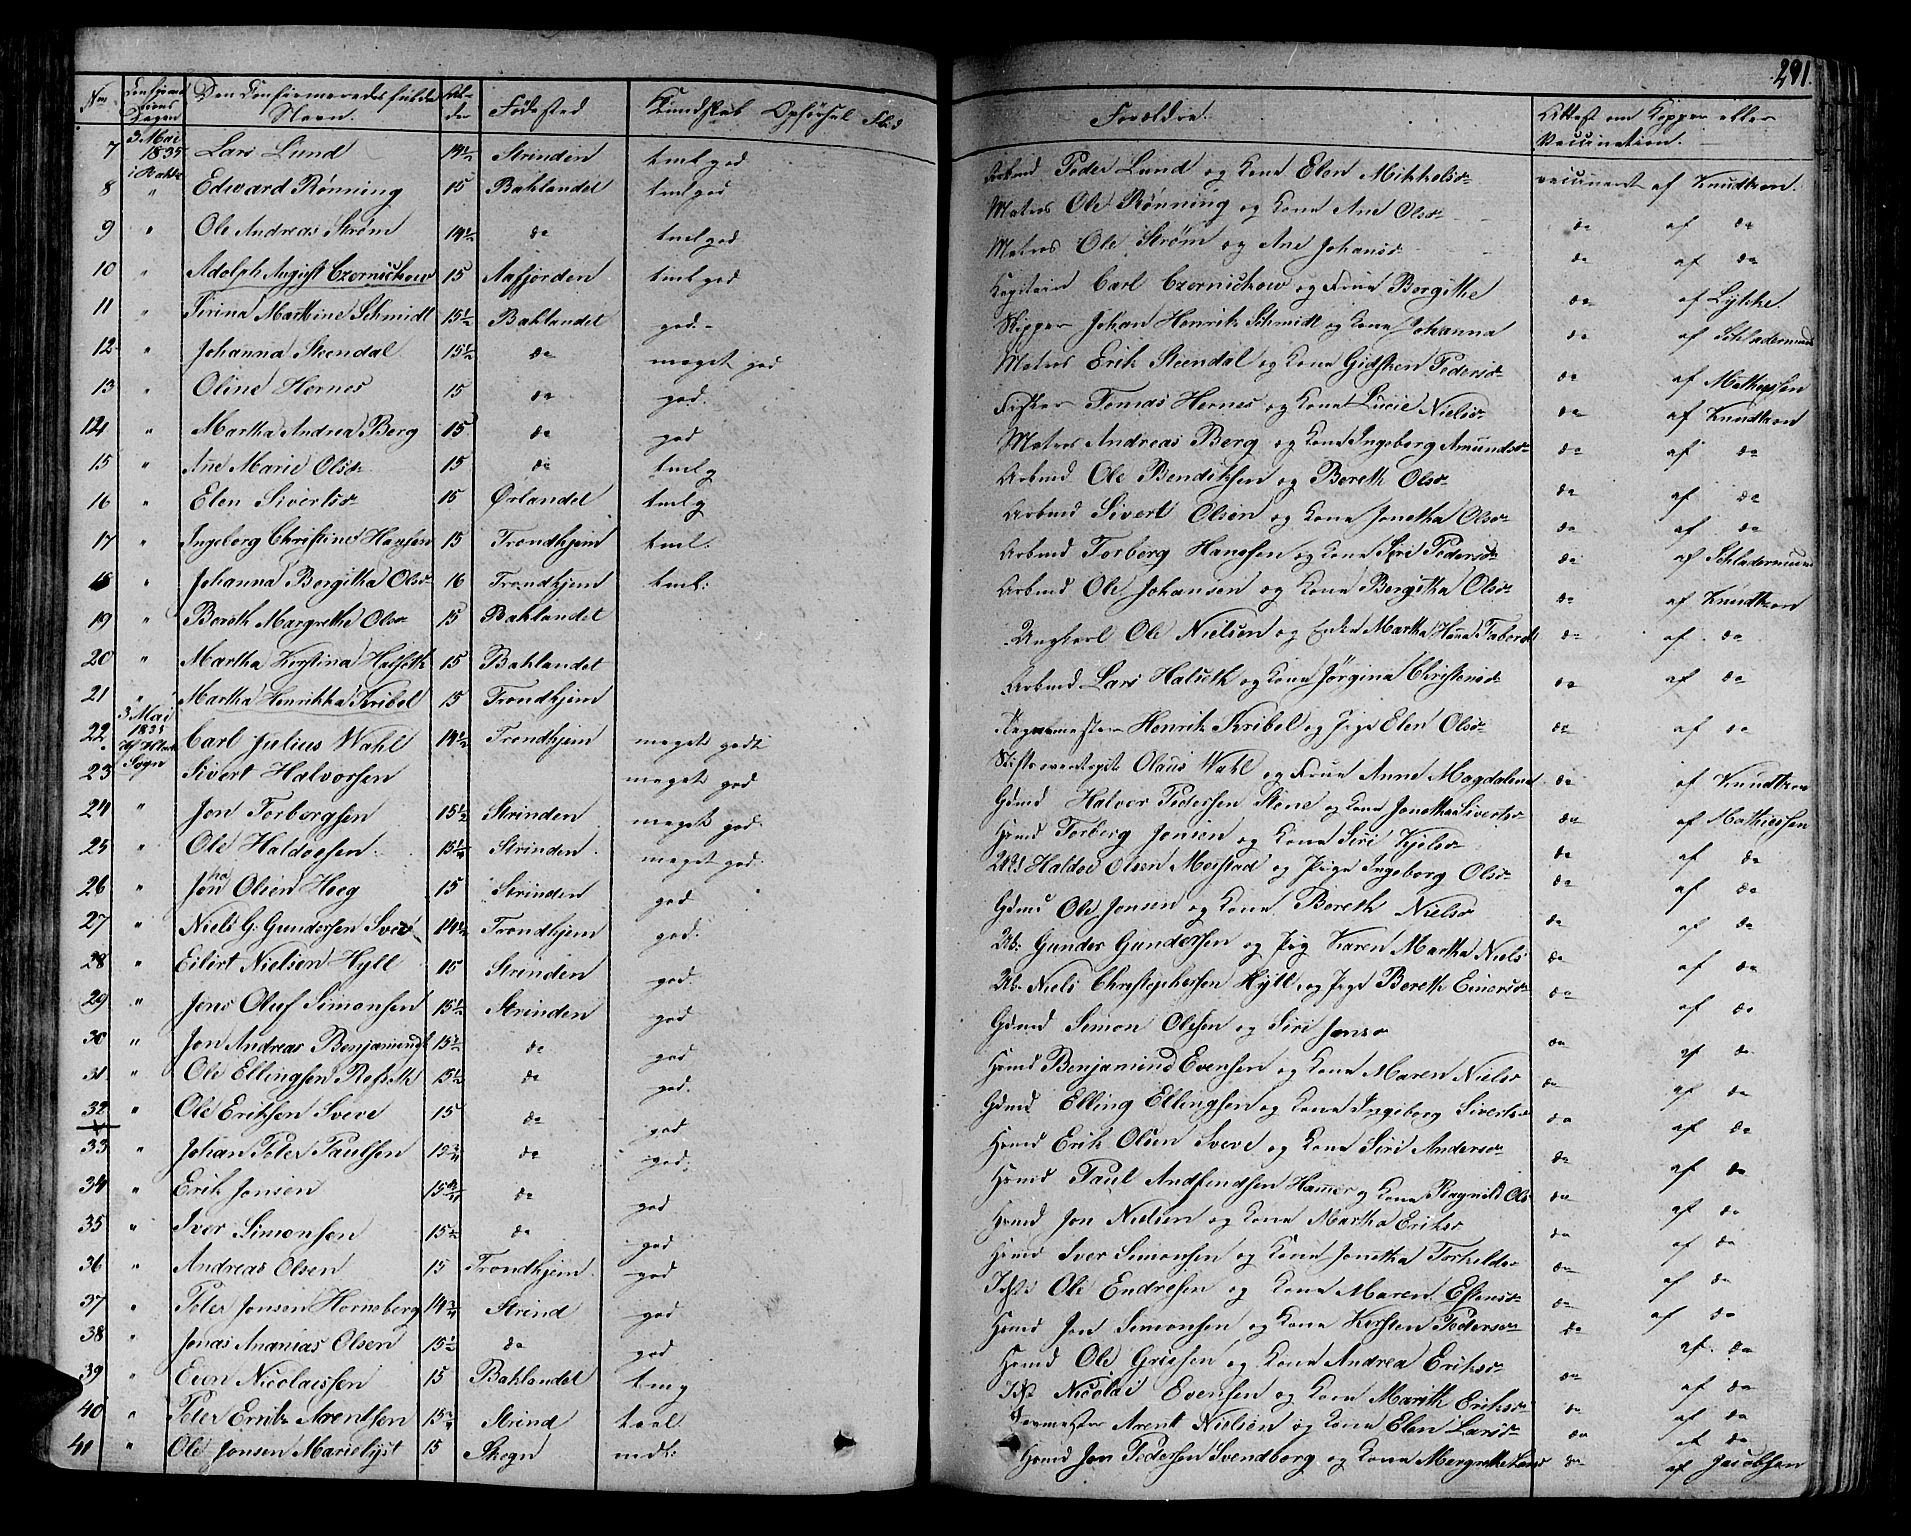 291.
Nr. Confirmations Dagen Den Confirmeredes fulde Navn. Alder Fødested Kundskab Opførsel Flid Forældre. Attest om Kopper eller Vaccination.
7 3 Mai 1835 Lars Lund 14½ Strinden tml god Arbmd Peder Lund og Kone Elen Mikkelsd vaccineret af Knudtzon.
8 " Edward Rønning 15 Baklandet tml god Matros Ole Rønning og Kone Ane Olsd do af do
9 " Ole Andreas Strøm 14½ do tml god Matros Ole Strøm og Ane Johansd do af do
10 " Adolph August Czernichow 15 Aafjorden tml god Capitain Carl Czernichow og Frue Bergithe do af Lycke
11 " Sirina Martine Schmidt 15½ Baklandet god. Skipper Johan Henrik Schmidt og Kone Johanna do af Schladermund
12 " Johanna Steendal 15½ do meget god Matros Erik Steendal og Kone Gidsken Pedersd do af Mathiessen
13 " Oline Hernes 15 do god. Fisker Tomas Hernes og Kone Lucie Nielsd do af Knudtzon
14 " Martha Andrea Berg 15 do god Matros Andreas Berg og Kone Ingeborg Amundsd do af do
15 " Ane Marie Olsd 15 do tml g Arbmd Ole Bendiksen og Bereth Olsd do af do
16 " Elen Sivertsd 15 Ørlandet tml g Arbmd Sivert Olsen og Kone Jonetha Olsd do af do
17 " Ingeborg Christine Hansen 15 Trondhjem tml. Arbmd Torberg Hansen og Kone Siri Pedersd do af Schladermund
18 " Johanna Bergitha Olsd 16 Trondhjem tml: Arbmd Ole Johansen og Kone Bergitha Olsd do af Knudtzon
19 " Bereth Margrethe Olsd 15 Baklandet Ungkarl Ole Nielsen og Enke Martha do af do
20 " Martha Kirstina Halseth 15 Baklandet Arbmd Lars Halseth og Kone Jørgina Christensd do af do
21 " Martha Henrikka Kribel 15 Trondhjem Henrik Kribel og Pige Elen Olsd do af do
22 3 Mai 1835 Sogn Carl Julius Wahl 14½ Trondhjem meget godt Olaus Wahl og Frue Anne Magdalena do af Knudtzon
23 Sivert Halvorsen meget god Gdmd Halvor Pedersen Stene og Kone Jonetha Sivertsd do af Mathiessen
24 " Jon Torbergsen 15½ Strinden meget god. Hsmd Torberg Jonsen og Kone Siri Kjelsd do af do
25 " Ole Haldosen 15¼ Strinden meget god. Haldo Olsen Moistad og Pige Ingeborg Olsd do af do
26 " Jon Olsen Høeg 15 Strinden god Gdmd Ole Jonsen og Kone Bereth Nielsd do af do
27 " Niels G. Gundersen Sved 14½ Trondhjem god. Gunder Gundersen og Pig Karen Martha Niels do af do
28 " Eilert Nielsen Hyll 15 Strinden god. Niels Christophersen Hyll og Pige Bereth Einersd do af do
29 " Jens Oluf Simonsen 15½ Strinden god Gdmd Simon Olsen og Siri Jonsd do af do
30 " Jon Andreas Benjamins 15½ do god Hsmd Benjamind Evensen og Kone Maren Nielsd do af do
31 " Ole Ellingsen Refseth 15½ do god. Gdmd Elling Ellingsen og Kone Ingeborg Sivertsd do af do
32 " Ole Eriksen Sveve 15 do god Hsmd Erik Olsen Sveve og Kone Siri Andersd do af do
33 " Johan Peter Paulsen do god. Hsmd Paul Andfendsen Hammer og Kone Ragnild Ols do af do
34 " Erik Jonsen do god Hsmd Jon Nielsen og Kone Martha Eriksd do af do
35 " Iver Simonsen 15½ do god Hsmd Iver Simonsen og Kone Jonetha Torkeldsd do af do
36 " Andreas Olsen 15 Trondhjem. god Ole Endresen og Kone Maren Estensd do af do
37 " Peter Jonsen Horneberg 14¾ Strind god Hsmd Jon Simonsen og Kone Kersten Pedersd do af do
38 " Jonas Ananias Olsen 15½ do god Hsmd Ole Griesen og Kone Andrea Eriksd do af do
39 " Even Nicolaisen 15 Baklandet tmg Nicolai Evensen og Kone Marith Eriksd do af do
40 " Peter Erntz Arentsen 15¾ Strind taal Arent Nielsen og Kone Elen Larsd do af do
41 " Ole Jonsen Marielyst 15 Skogn mdl: Hsmd Jon Pedersen Svendborg og Kone Mergrethe do af Jacobsen